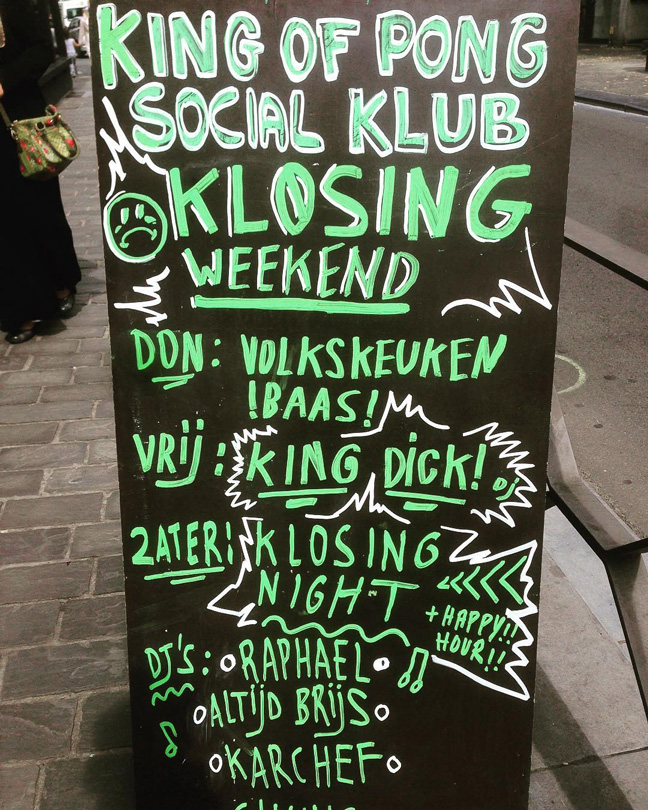 KING OF PONG
SOCIAL KLUB
KLOSING
WEEKEND
DON: VOLKSKEUKEN
!BAAS!
VRIJ: KING DICK! DJ
ZATER: KLOSING
NIGHT
+HAPPY!!
HOUR!!
DJ'S: RAPHAEL
ALTIJD BRIJS
KARCHEF